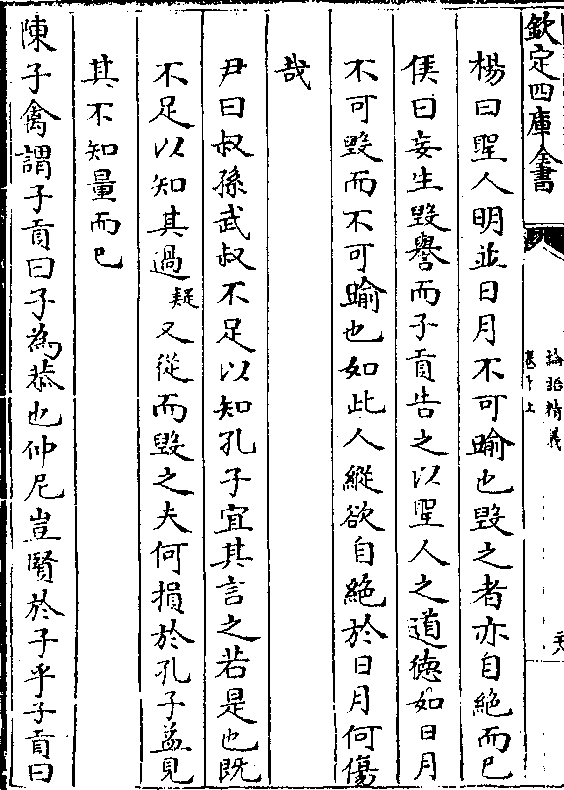 欽定四庫全書
論語精義
楊曰聖人明並日月不可踰也毀之者亦自絶而已
侯曰妄生毀譽而子貢告之以聖人之道德如日月
不可毀而不可踰也如此人縱欲自絶於日月何傷
哉
尹曰叔孫武叔不足以知孔子宜其言之若是也既
不足以知其過疑又從而毀之夫何損於孔子葢見
其不知量而已
陳子禽謂子貢曰子為恭也仲尼豈賢於子乎子貢曰